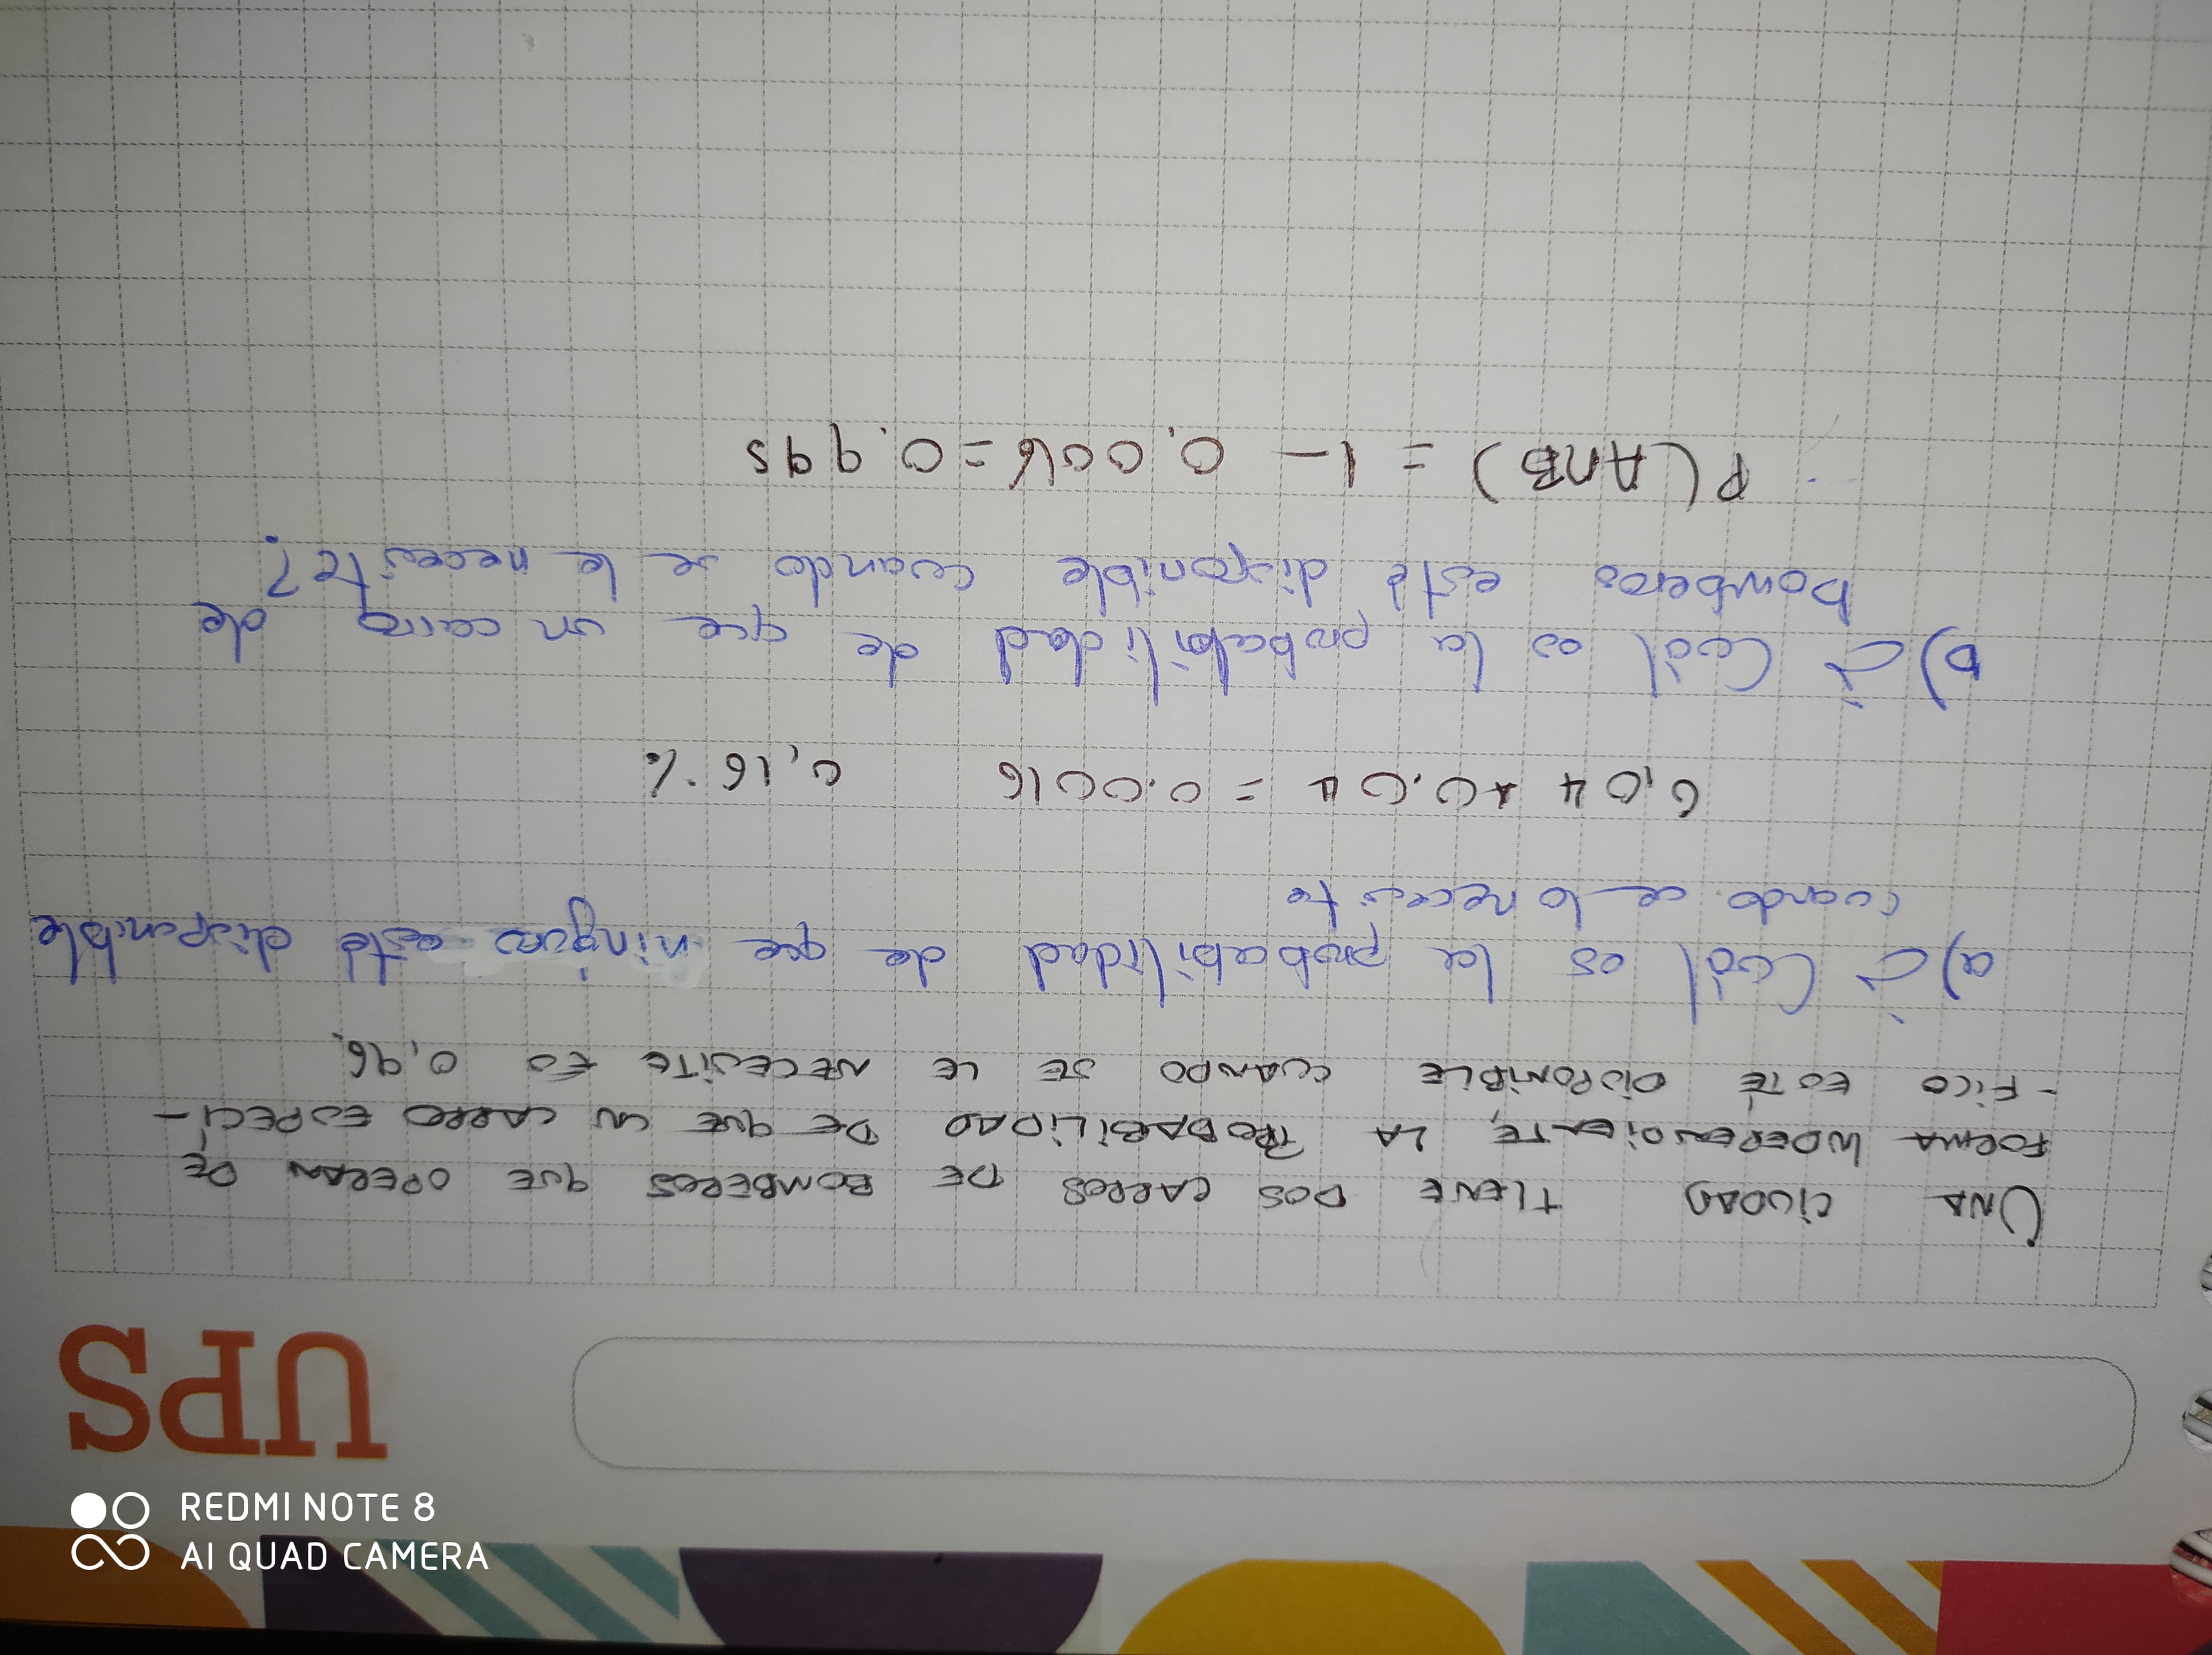 UPS
UNA CIUDAD TIENE DOS CARROS DE BOMBEROS QUE OPERAN DE
FORMA INDEPENDIENTE, LA PROBABILIDAD DE QUE UN CARRO ESPECÍ-
-FICO ESTÉ DISPONIBLE CUANDO SE LE NECESITE ES 0,96.
a) ¿ Cuál es la probabilidad de que ninguno esté disponible
cuando se lo necesite
0,04 * 0.04 = 0.0016 0,16 %
b) ¿ Cuál es la probabilidad de que un carro de
bomberos esté disponible cuando se le necesite?
P(A∩B) = 1 - 0.0016 = 0.998
REDMI NOTE 8
AI QUAD CAMERA